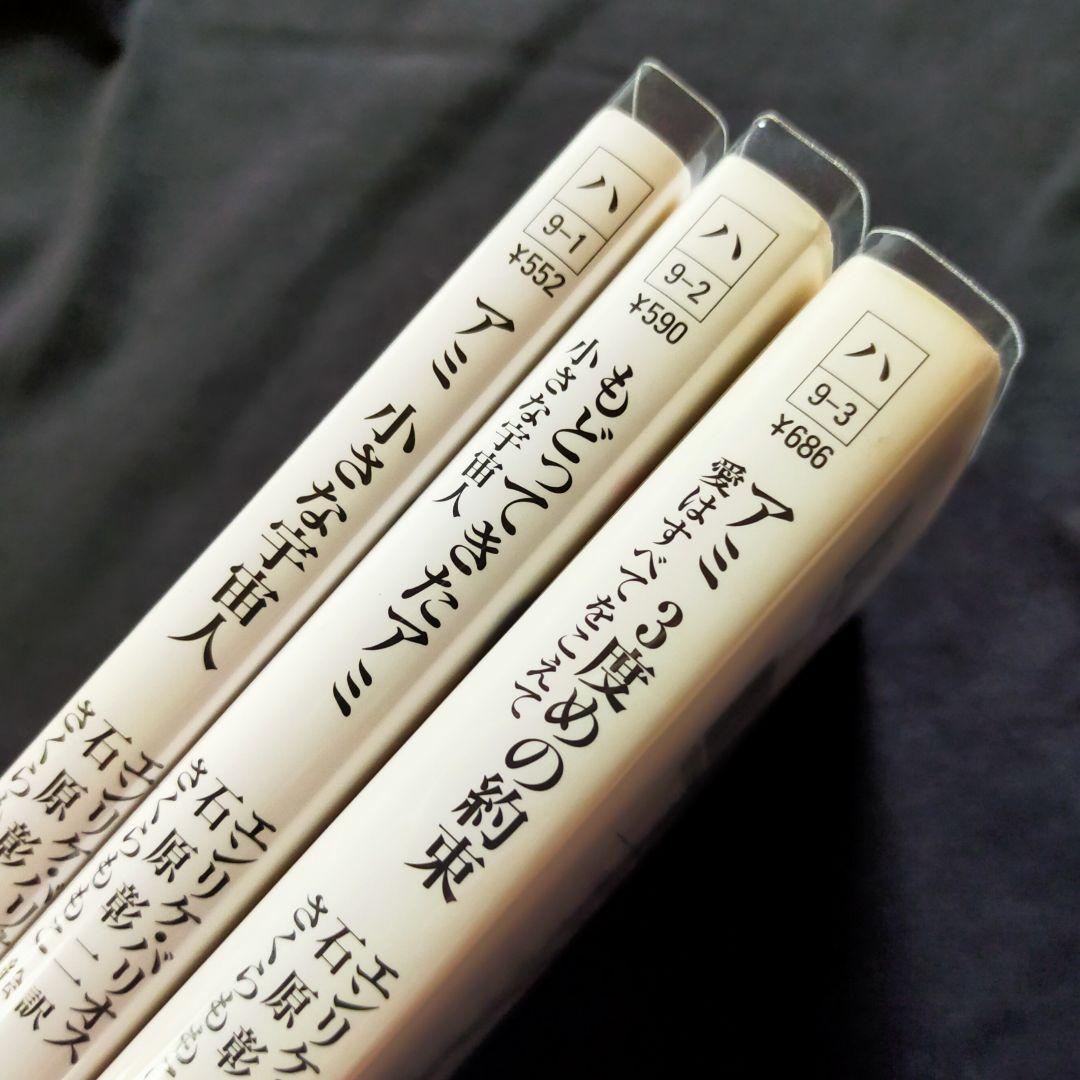 ハ
9-1
¥552
アミ 小さな宇宙人
エンリケ・バリ
石原彰
さくらも
ハ
9-2
¥590
もどってきたアミ
小さな宇宙人
エンリケ・バリオス
石原彰二 訳
さくらももこ 絵
ハ
9-3
¥686
アミ 3度めの約束
愛はすべてをこえて
エンリケ
石原彰
さくらもも